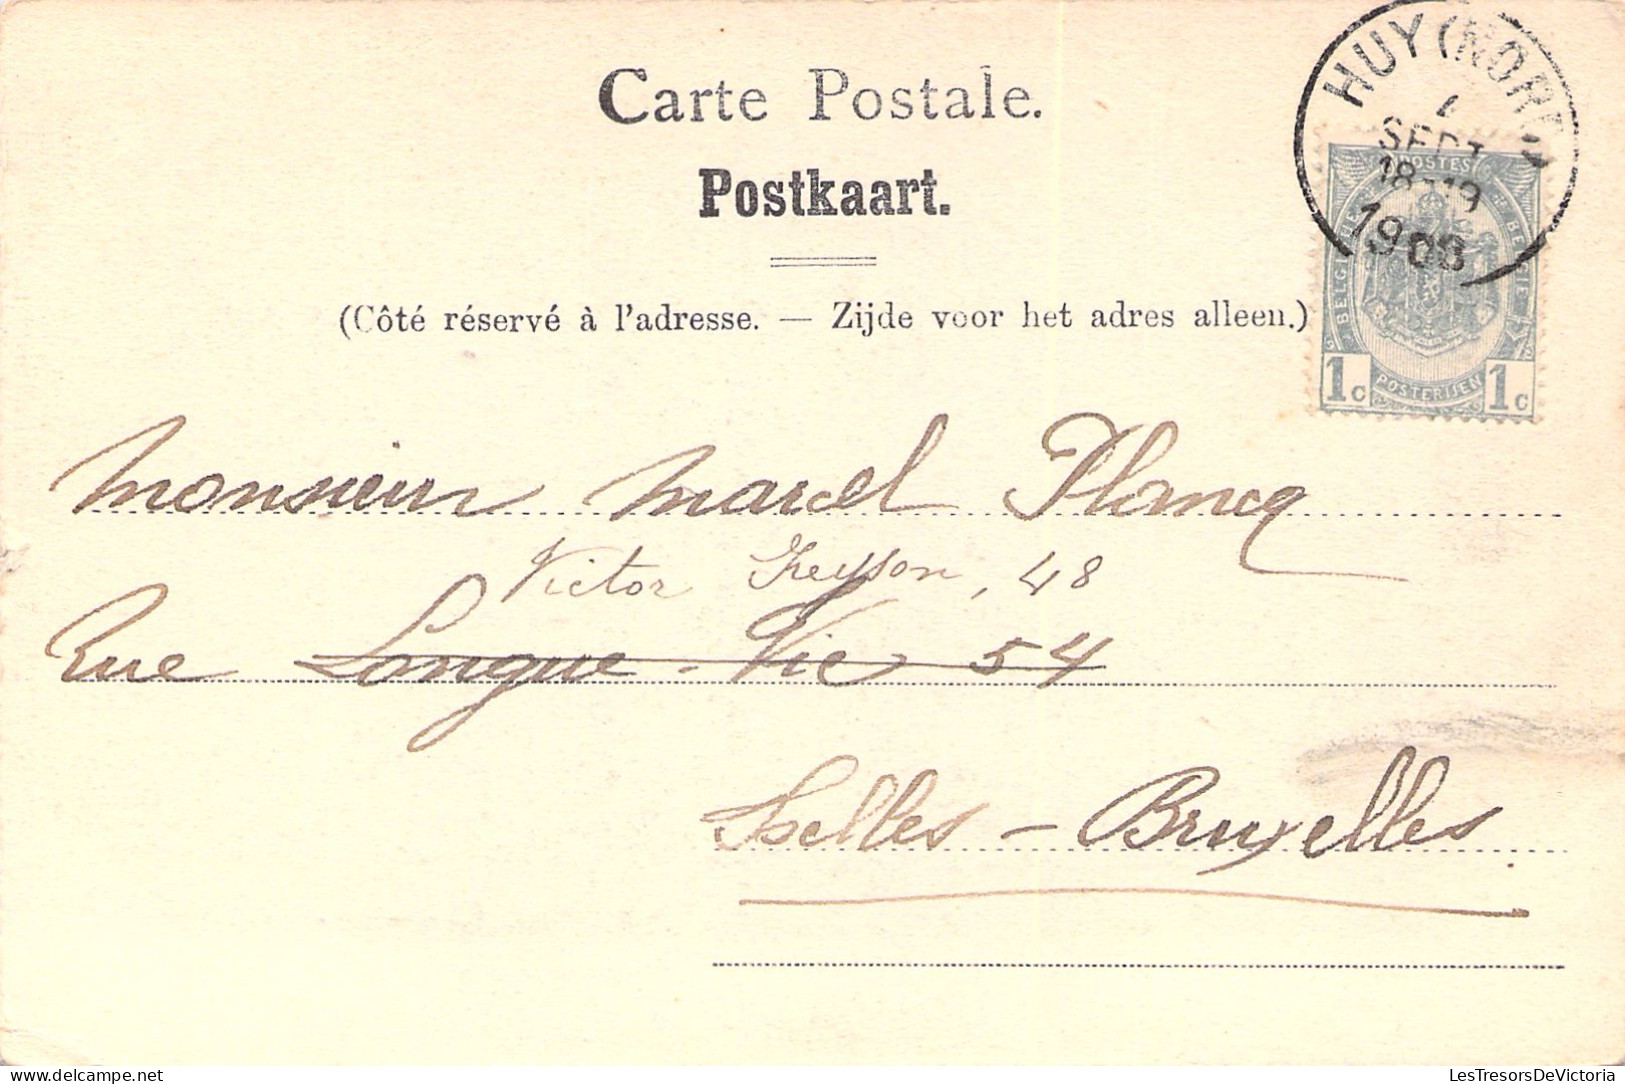 Carte Postale.
Postkaart.
(Côté réservé à l'adresse. — Zijde voor het adres alleen.)
HUY (NORD)
SEPT
18-19
1903
POSTES
BELGIQUE
BELGIE
1c POSTERIJEN 1c
Monsieur Marcel Plancq
Victor Greyson, 48
Rue Longue-Vie 54
Ixelles - Bruxelles
LesTresorsDeVictoria